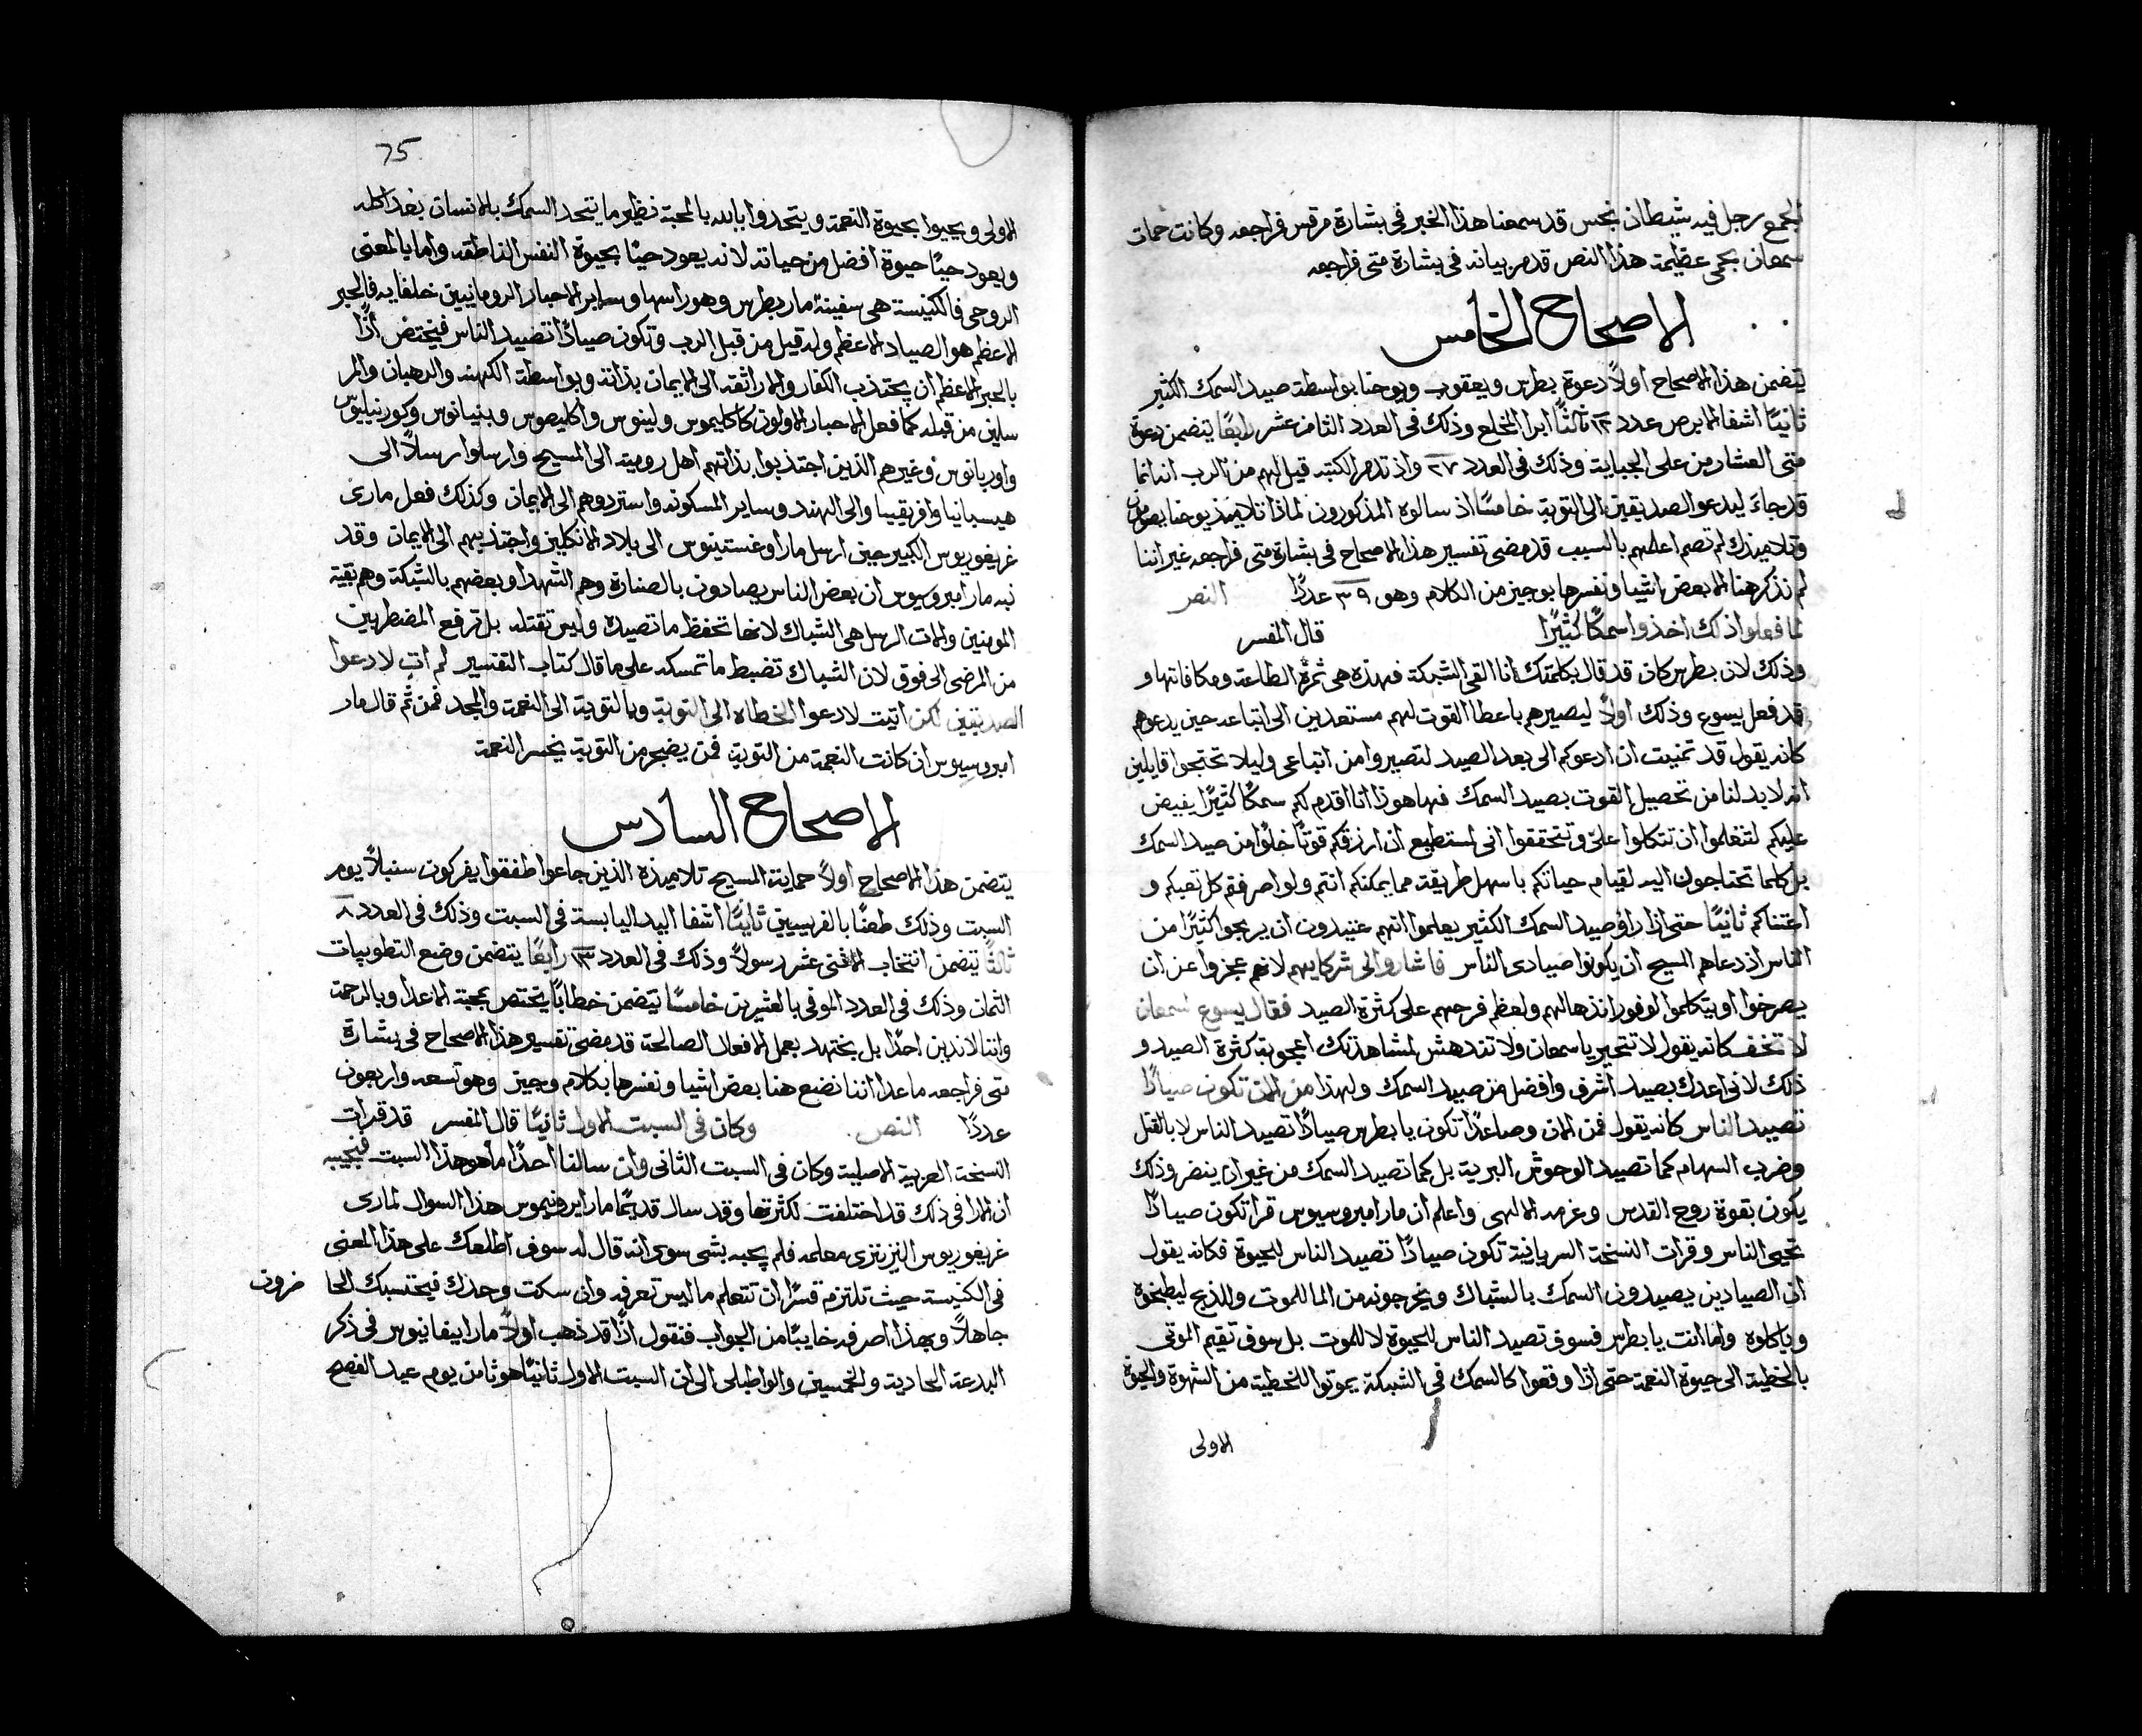 المجمع رجل فيه شيطان نجس قد سمعنا هذا الخبر في بشارة مرقس فراجعه وكانت حمات
سمعان بحمى عظيمة هذا النص قد مر بيانه في بشارة متى فراجعه
الاصحاح الخامس
يتضمن هذا الاصحاح اولاً دعوة بطرس ويعقوب ويوحنا بواسطة صيد السمك الكثير
ثانيًا اشفا الابرص عدد ١٢ ثالثًا ابرا المخلع وذلك في العدد الثامن عشر رابعًا يتضمن دعوة
متى العشار من على الجباية وذلك في العدد ٢٧ واذ تذمر الكتبه قيل لهم من الرب انه انما
قد جاء ليدعو الصديقين الى التوبة خامسًا اذ سالوه المذكورون لماذا تلاميذ يوحنا يصومون
وتلاميذك لم تصم اعلمهم بالسبب قد مضى تفسير هذا الاصحاح في بشارة متى فراجعه غير اننا
لم نذكر هنا الا بعض اشيا ونفسرها بوجيز من الكلام وهو ٣٩ عددًا النص
لما فعلوا ذلك اخذوا سمكًا كثيرًا قال المفسر
وذلك لان بطرس كان قد قال بكلمتك انا القي الشبكة فهذه هي ثمرة الطاعة ومكافاتها و
قد فعل يسوع وذلك اولاً ليصيرهم باعطا القوت لهم مستعدين الى اتباعه حين يدعوهم
كانه يقول قد تمنيت ان ادعوكم الى بعد الصيد لتصيروا من اتباعي وليلا تحتجوا قايلين
انه لا بد لنا من تحصيل القوت بصيد السمك فها هوذا انا اقدم لكم سمكًا كثيرًا يفيض
عليكم لتتعلموا ان تتكلوا عليّ وتتحققوا اني استطيع ان ارزقكم قوتًا خلوًا من صيد السمك
بل كلما تحتاجون اليه لقيام حياتكم باسهل طريقة مما يمكنكم انتم ولو اصرفتم كل تعبكم و
اعتناكم ثانيًا حتى اذا راوا صيد السمك الكثير يعلموا انهم عتيدون ان يربحوا كثيرًا من
الناس اذ دعاهم المسيح ان يكونوا صيادى الناس فاشاروا الى شركايهم لانهم عجزوا عن ان
يصرخوا او يتكلموا لوفور انذهالهم ولعظم فرحهم على كثرة الصيد فقال يسوع لسمعان
لا تخف كانه يقول لا تتحير يا سمعان ولا تندهش لمشاهدتك اعجوبة كثرة الصيد و
ذلك لاني اعدك بصيد اشرف وافضل من صيد السمك ولهذا من الان تكون صيادًا
تصيد الناس كانه يقول فمن الان وصاعدًا تكون يا بطرس صيادًا تصيد الناس لا بالقتل
وضرب السهام كما تصيد الوحوش البرية بل كما تصيد السمك من غير ان ينضر وذلك
يكون بقوة روح القدس وعزمه الالهي واعلم ان مار امبروسيوس قرا تكون صيادًا
تحيي الناس وقرات النسخة السريانية تكون صيادًا تصيد الناس للحيوة فكانه يقول
ان الصيادين يصيدون السمك بالشباك ويخرجونه من الما للموت وللذبح ليطبخوه
وياكلوه واما انت يا بطرس فسوف تصيد الناس للحيوة لا للموت بل سوف تقيم الموتى
بالخطية الى حيوة النعمة حتى اذا وقعوا كالسمك في الشبكة يموتوا للخطية من الشهوة والحيوة
الاولى
75
الاولى ويحيوا بحيوة النعمة ويتحدوا بالله بالمحبة نظير ما يتحد السمك بالانسان بعد اكله
ويعود حيًا حيوة افضل من حياته لانه يعود حيًا بحيوة النفس الناطقه واما بالمعنى
الروحي فالكنيسة هي سفينة مار بطرس وهو راسها وساير الاحبار الرومانيين خلفايه فالحبر
الاعظم هو الصياد الاعظم وله قيل من قبل الرب وتكون صيادًا تصيد الناس فيختص اذًا
بالحبر الاعظم ان يجتذب الكفار والاراتقه الى الايمان بذاته وبواسطة الكهنه والرهبان والمر
سلين من قبله كما فعل الاحبار الاولون كاكليموس ولينوس واكليموس وبنيانوس وكورنيليوس
واوربانوس وغيرهم الذين اجتذبوا بذاتهم اهل رومية الى المسيح وارسلوا رسلاً الى
هيسبانيا وافريقييا والى الهند وساير المسكونه واستردوهم الى الايمان وكذلك فعل مارى
غريغوريوس الكبير حين ارسل مار اوغستينوس الى بلاد الانكليز واجتذبهم الى الايمان وقد
نبه مار امبروسيوس ان بعض الناس يصادون بالصنارة وهم الشهدا وبعضهم بالشبكة وهم بقية
المومنين والات الرسل هي الشباك لانها تحفظ ما تصيده وليس تقتله بل ترفع المضطربين
من المرضى الى فوق لان الشباك تضبط ما تمسكه على ما قال كتاب التفسير لم آتِ لادعوا
الصديقين لكن اتيت لادعوا الخطاه الى التوبة وبالتوبة الى النعمة والمجد فمن ثم قال مار
امبروسيوس ان كانت النعمة من التوبة فمن يضجر من التوبة يخسر النعمة
الاصحاح السادس
يتضمن هذا الاصحاح اولاً حماية المسيح تلاميذه الذين جاعوا طفقوا يفركون سنبلاً يوم
السبت وذلك طعنًا بالفريسيين ثانيًا اشفا اليد اليابسة في السبت وذلك في العدد ٨
ثالثًا يتضمن انتخاب الاثني عشر رسولاً وذلك في العدد ١٣ رابعًا يتضمن وضع التطوبيات
الثمان وذلك في العدد الموفي بالعشرين خامسًا يتضمن خطابًا يختص بمحبة الاعدا وبالرحمة
واننا لا ندين احدًا بل نجتهد بعمل الافعال الصالحة قد مضى تفسير هذا الاصحاح في بشارة
متى فراجعه ما عدا اننا نضع هنا بعض اشيا ونفسرها بكلام وجيز وهو تسعه واربعون
عددًا النص وكان في السبت الاول ثانيًا قال المفسر قد قرات
النسخة العربية الاصلية وكان في السبت الثاني وان سالنا احدًا ما هو هذا السبت فنجيبه
ان الارا في ذلك قد اختلفت لكثرتها وقد سال قديمًا مار ايرونيموس هذا السوال لمارى
غريغوريوس النزينزى معلمه فلم يجبه بشي سوى انه قال له سوف اطلعك على هذا المعنى
في الكنيسة حيث تلتزم قسرًا ان تتعلم ما ليس تعرفه وان سكت وحدك فيحتسبك الحا ضرون
جاهلاً وبهذا اصرفه خايبًا من الجواب فنقول اذًا قد ذهب اولاً مار ابيفانيوس في ذكر
البدعة الحادية والخمسين والواطبلي الى ان السبت الاول ثانيًا هو ثامن يوم عيد الفصح